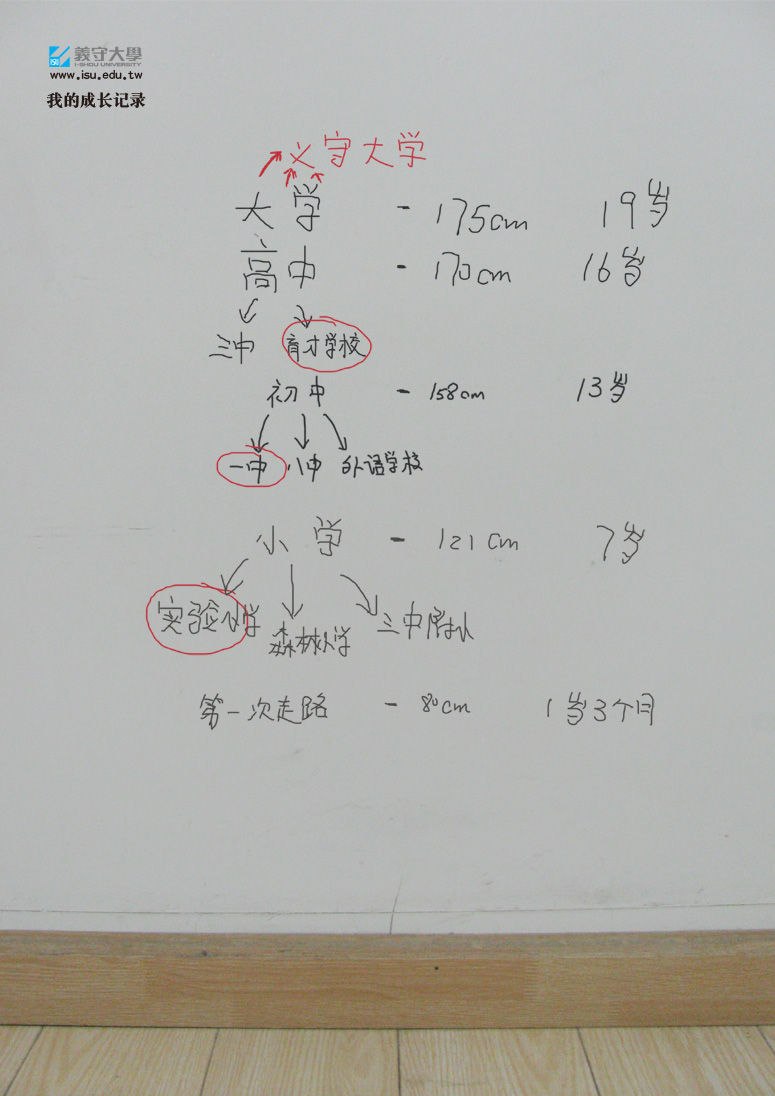 義守大學
I-SHOU UNIVERSITY
www.isu.edu.tw
我的成长记录
义守大学
大学 - 175cm 19岁
高中 - 170cm 16岁
三中 育才学校
初中 - 158cm 13岁
一中 八中 外语学校
小学 - 121cm 7岁
实验小学 森林小学 三中附小
第一次走路 - 80cm 1岁3个月